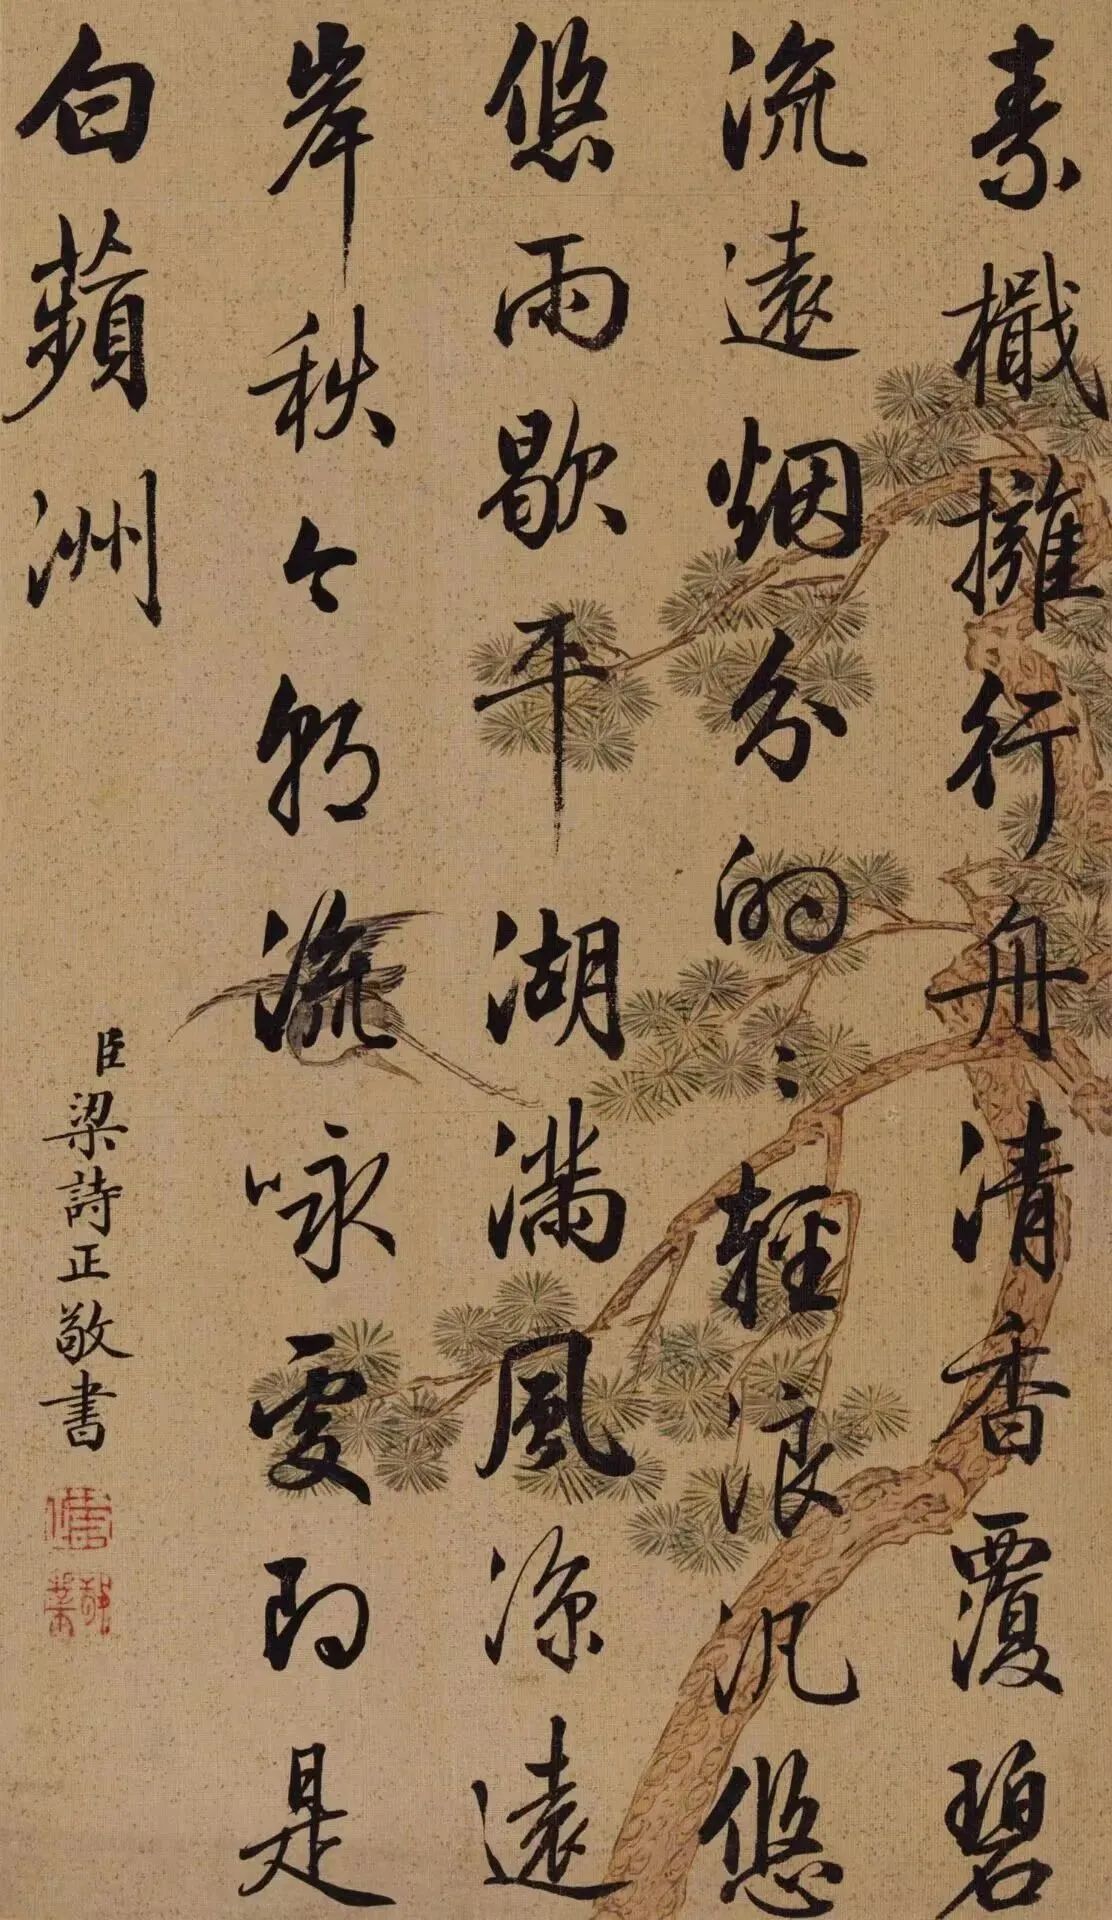 素檝擁行舟清香覆碧
流遠烟分的〻輕浪汎悠
悠雨歇平湖滿風涼遠
岸秋今朝流咏處即是
白蘋洲
臣梁詩正敬書